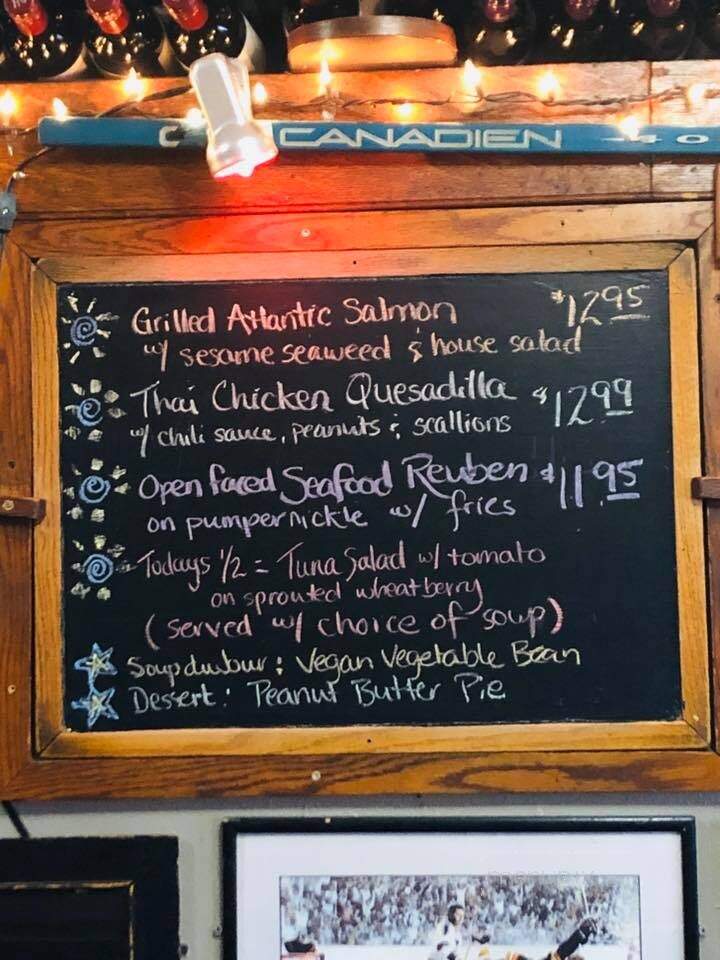 CANADIEN
Grilled Atlantic Salmon $12.95
w/ sesame seaweed & house salad
Thai Chicken Quesadilla $12.99
w/ chili sauce, peanuts & scallions
Open faced Seafood Reuben $11.95
on pumpernickle w/ fries
Todays 1/2 = Tuna Salad w/ tomato
on sprouted wheatberry
(served w/ choice of soup)
Soup dujour : Vegan Vegetable Bean
Desert : Peanut Butter Pie